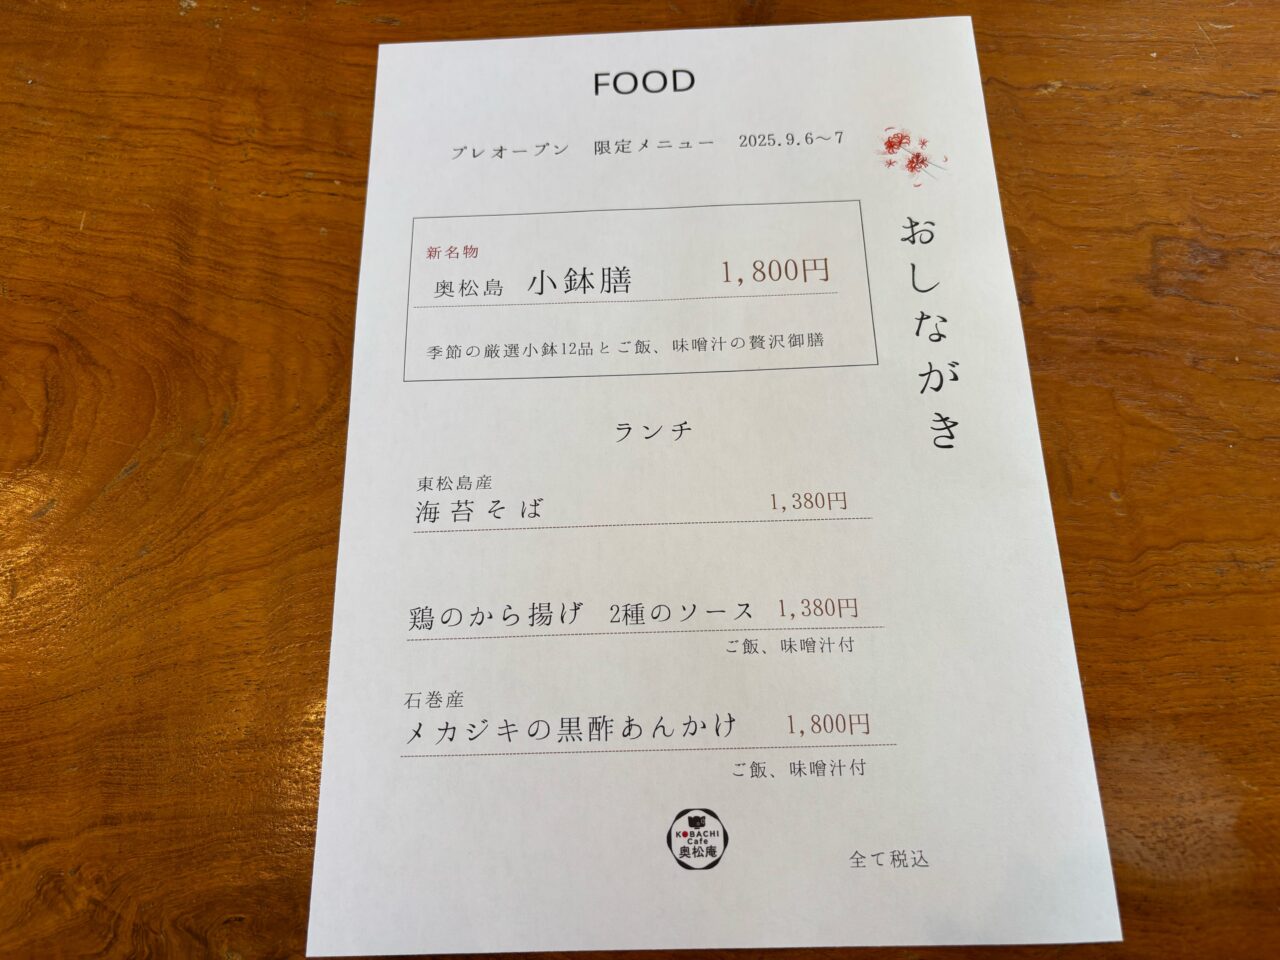 FOOD
プレオープン 限定メニュー 2025.9.6～7
おしながき
新名物
奥松島 小鉢膳 1,800円
季節の厳選小鉢12品とご飯、味噌汁の贅沢御膳
ランチ
東松島産
海苔そば 1,380円
鶏のから揚げ 2種のソース 1,380円
ご飯、味噌汁付
石巻産
メカジキの黒酢あんかけ 1,800円
ご飯、味噌汁付
KOBACHI
Cafe
奥松庵
全て税込